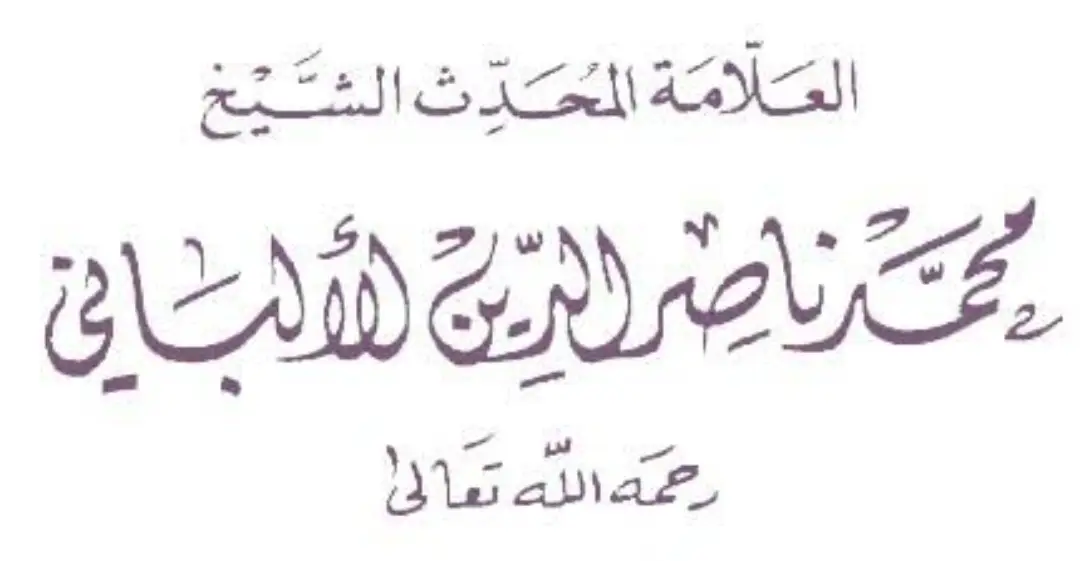 العَلّامَة المُحَدِّث الشَّيْخ
محمَّد ناصِر الدِّين الألبَاني
رحمَه اللّه تَعَالىٰ